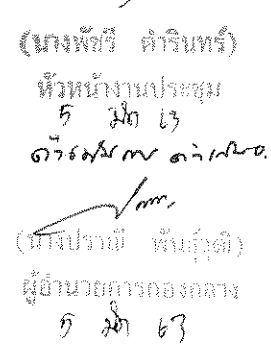 (นางพัชรี ดำรินทร์)
หัวหน้างานประชุม
5 มีค 63
(นางปราณี พันธุ์วุฒิ)
ผู้อำนวยการกองกลาง
5 มีค 63